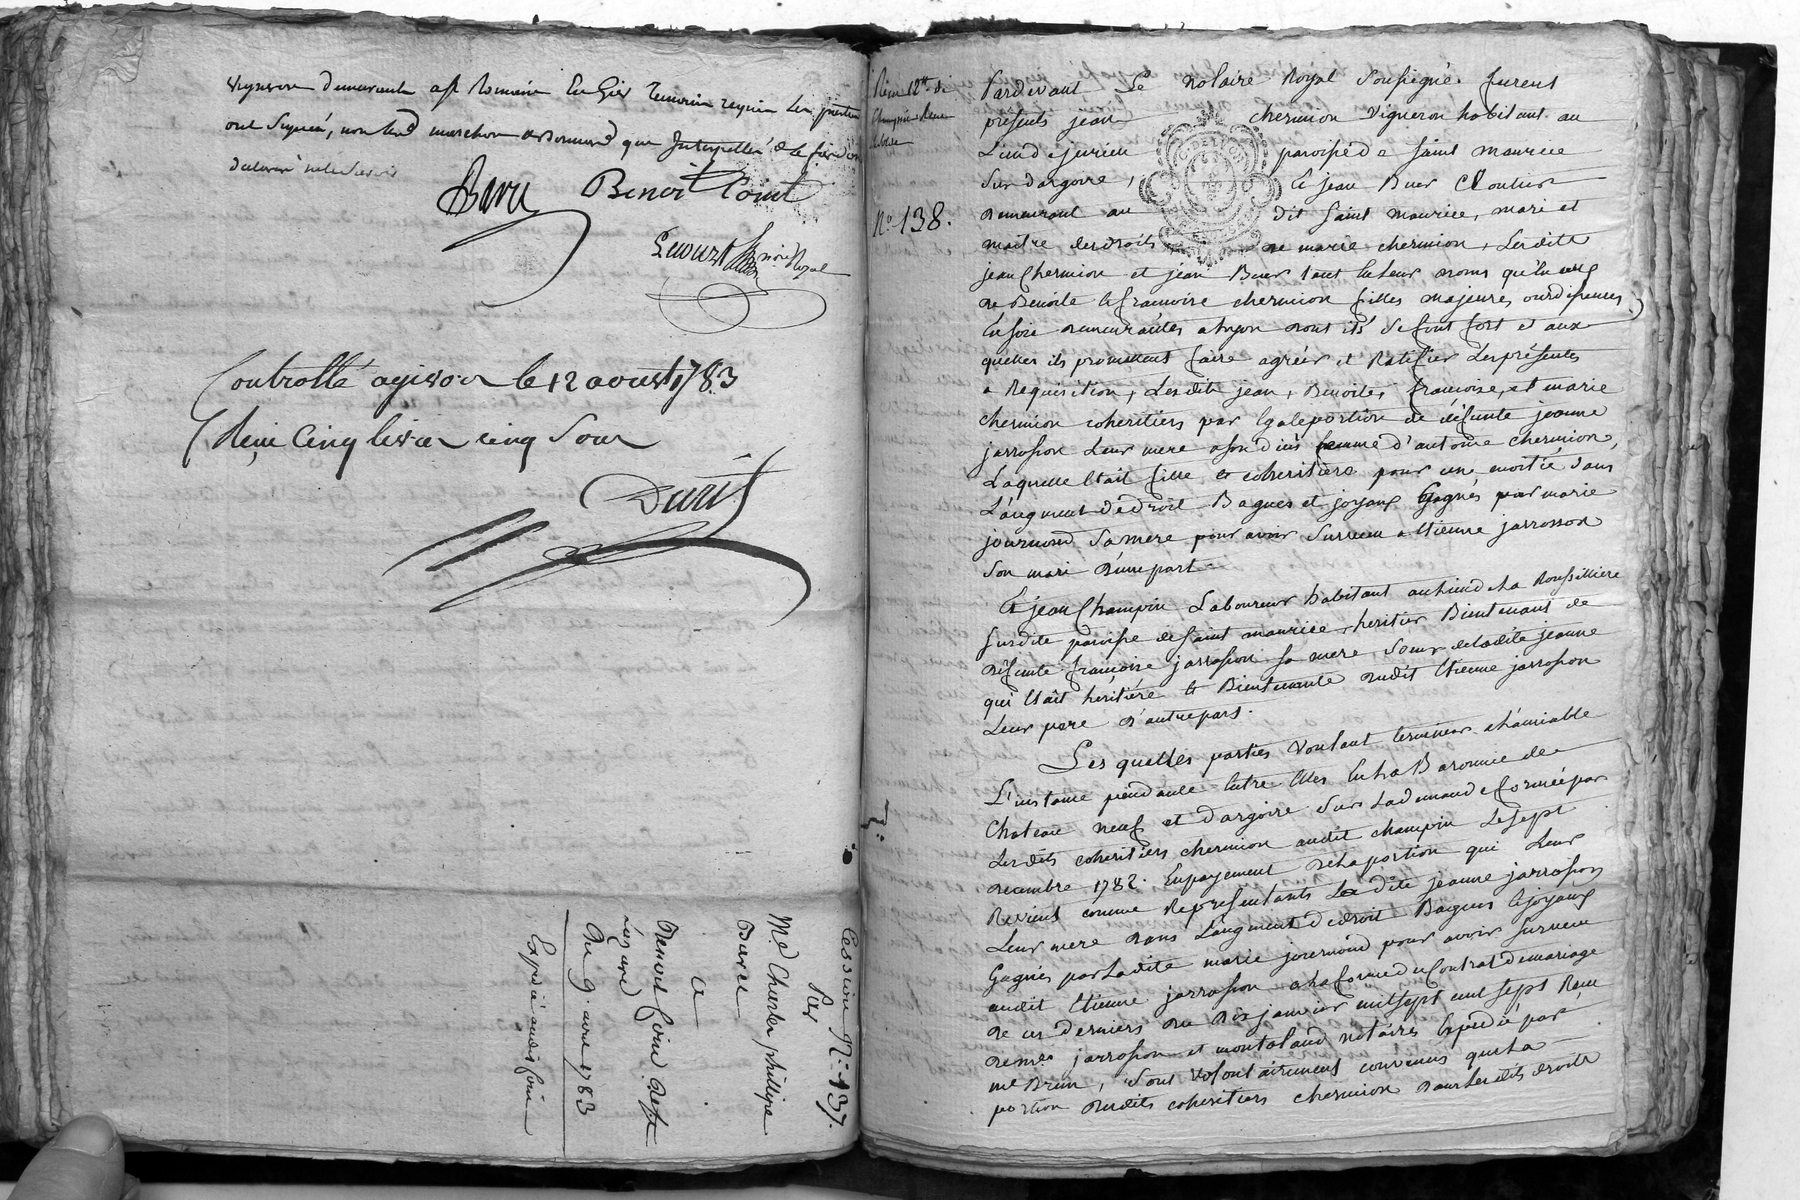 vigneron demeurants a St Romain En Gier Temoins requis Les parties
ont Signées, non Led marchon Dessommé que Interpellés de le faire ont
Declarés ne le Scavoir
Barre Benoit Coint
Lecourt Nore Royal
Controllé a givors le 12 aoust 1783
Reçu Cinq livres cinq Sour
Duris
Cession N.° 137.
Par
Me Charles phillipe
Barre
a
Benoit Coint
Du 9. aout 1783
Expédié audit Coint
N.° 138.
Pardevant Le Notaire Royal Soussigné furent
présents jean chermion Vigneron habitant au
Lieu de jurieu paroisse de Saint maurice
Sur dargoire, Et jean Buer Cloutier
demeurant au dit Saint maurice, mari et
maitre des droits de marie chermion, Lesdits
jean Chermion et jean Buer tant En leur noms qu'En ceux
de Benoite et francoise chermion filles majeures ourdisseuses
En soie demeurantes a Lyon dont ils Se font fort et aux
quelles ils promettent faire agréér et Ratifier Les présentes
a Requisition, Lesdits jean, Benoite, francoise, et marie
chermion coheritiers par Egale portion de défunte jeanne
jarrosson Leur mere a son décès femme d'antoine chermion,
Laquelle Etait fille et coheritière pour une moitié dans
L'augment de droit Bagues et joyaux Gagnés par marie
journoud Sa mere pour avoir Survecu a Etienne jarrosson
Son mari d'une part.
Et jean Champin Laboureur habitant au Lieu de La Roussilliere
Susdite paroisse de Saint maurice, heritier Bientenant de
défunte francoise jarrosson Sa mere Soeur de Ladite jeanne
qui Etait héritiére Et Bientenante dudit Etienne jarrosson
Leur pere d'autre part.
Les quelles parties Voulant terminer a L'amiable
L'instance pendante Entre Elles En La Baronnie de
Chateau neuf et dargoire Sur La demande formée par
Lesdits coheritiers chermion audit champin Le Sept
decembre 1782. En payement de La portion qui Leur
Revient comme Representants La dite jeanne jarrosson
Leur mere dans L'augment de droit Bagues Et joyaux
Gagnés par Ladite marie journoud pour avoir Survecu
audit Etienne jarrosson a La forme du Contrat de mariage
de ces derniers du Dix janvier mil Sept cent Sept Reçu
de mes jarrosson et montaland notaires Expedié par
me Brun, Sont Volontairement convenus que La
portion desdits coheritiers chermion dans Lesdits droits